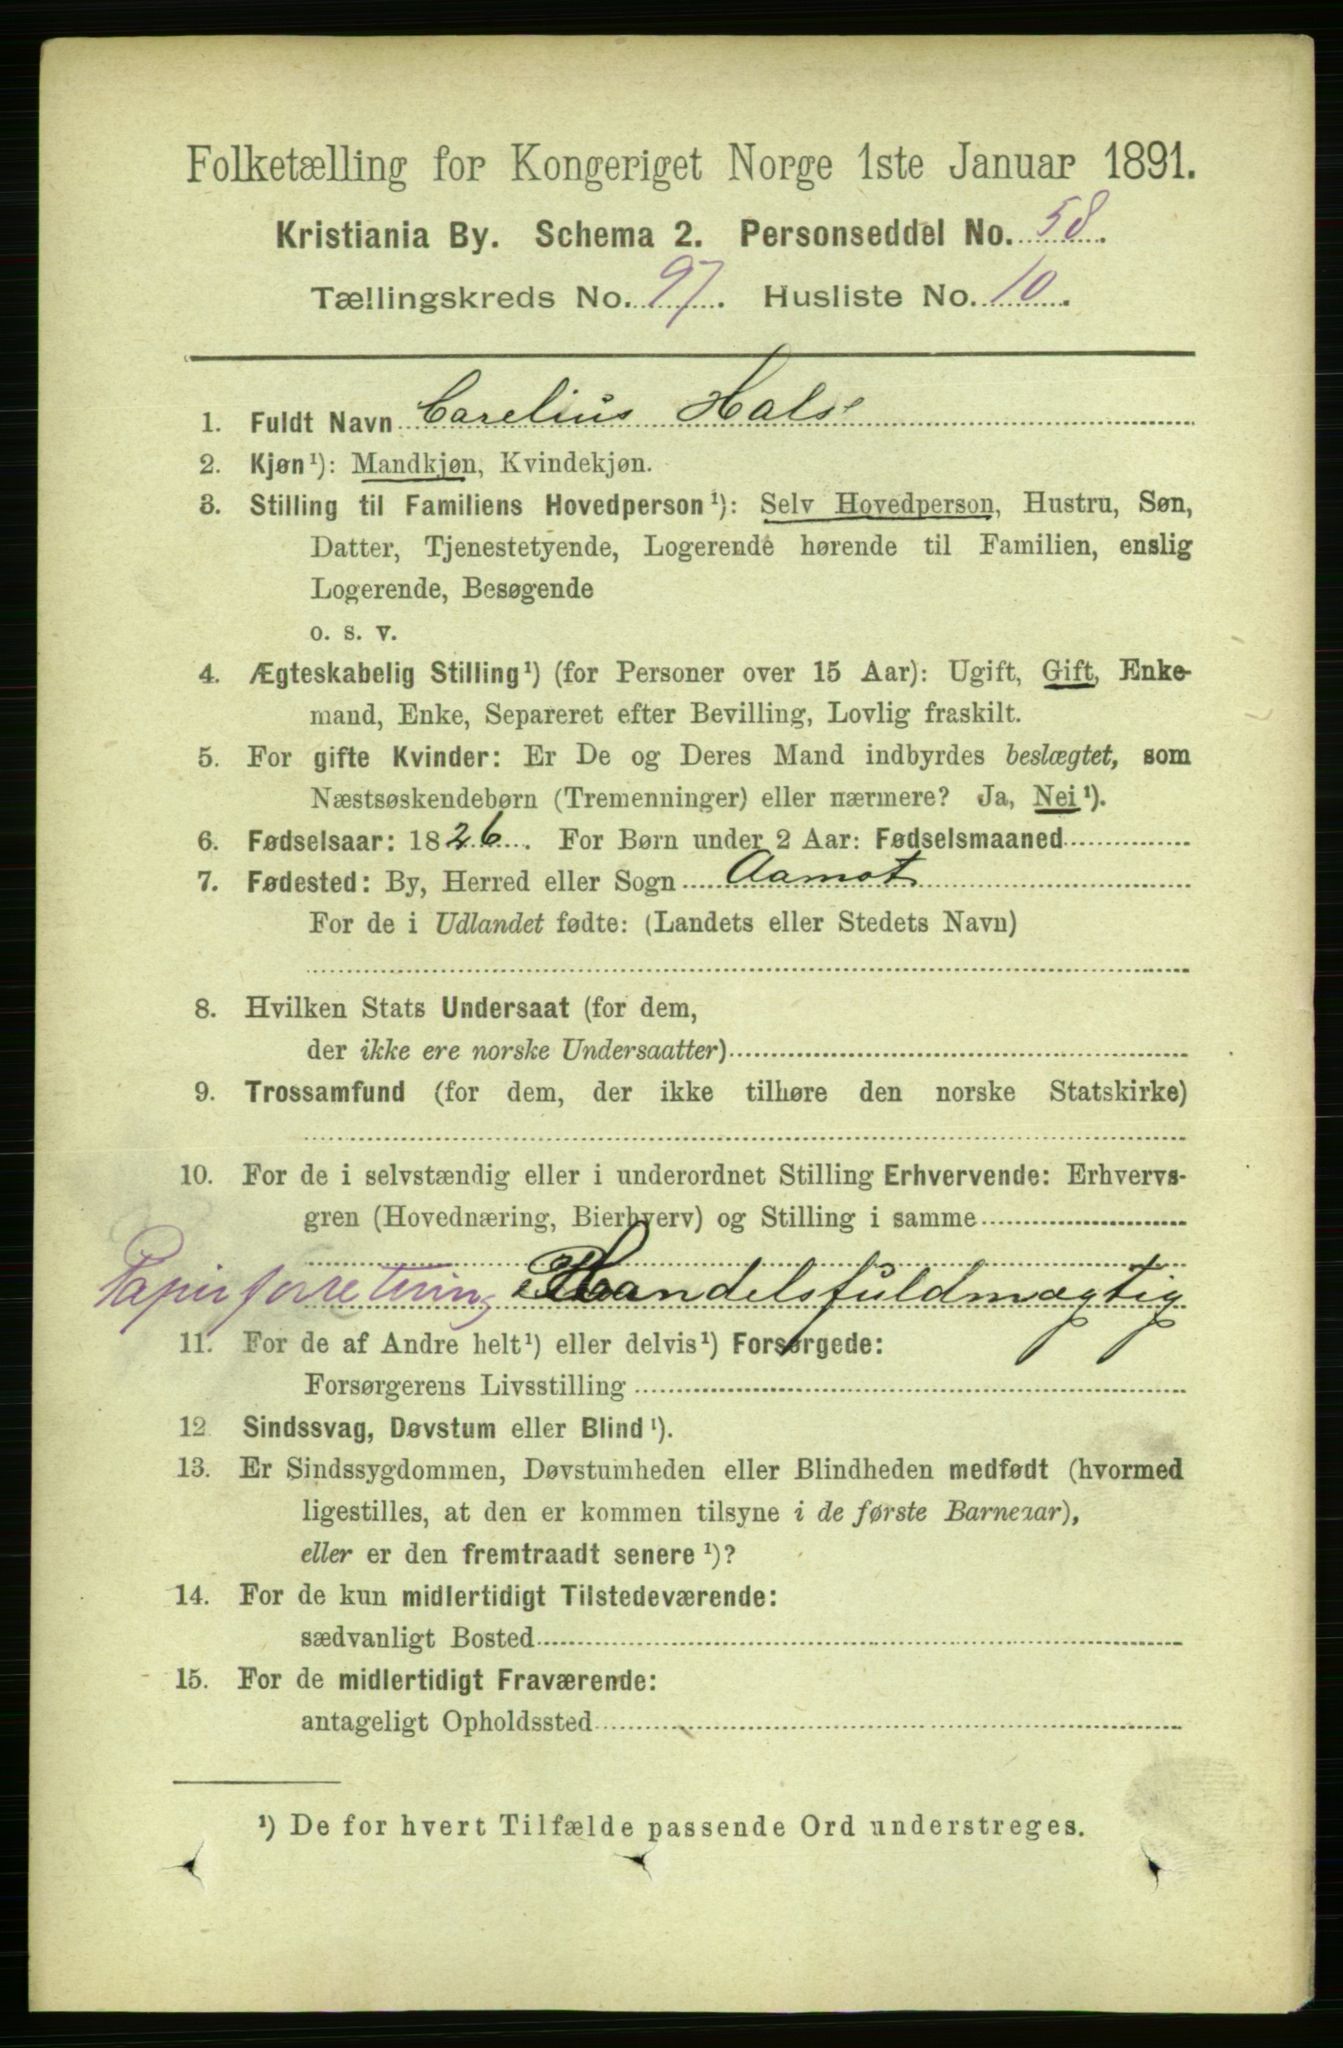 Folketælling for Kongeriget Norge 1ste Januar 1891.
Kristiania By. Schema 2. Personseddel No. 58.
Tællingskreds No. 97. Husliste No. 10.
1. Fuldt Navn Carelius Halse
2. Kjøn¹): Mandkjøn, Kvindekjøn.
3. Stilling til Familiens Hovedperson¹): Selv Hovedperson, Hustru, Søn,
Datter, Tjenestetyende, Logerende hørende til Familien, enslig
Logerende, Besøgende
o. s. v.
4. Ægteskabelig Stilling¹) (for Personer over 15 Aar): Ugift, Gift, Enke-
mand, Enke, Separeret efter Bevilling, Lovlig fraskilt.
5. For gifte Kvinder: Er De og Deres Mand indbyrdes beslægtet, som
Næstsøskendebørn (Tremenninger) eller nærmere? Ja, Nei¹).
6. Fødselsaar: 1826. For Børn under 2 Aar: Fødselsmaaned
7. Fødested: By, Herred eller Sogn Aamot
For de i Udlandet fødte: (Landets eller Stedets Navn)
8. Hvilken Stats Undersaat (for dem,
der ikke ere norske Undersaatter)
9. Trossamfund (for dem, der ikke tilhøre den norske Statskirke)
10. For de i selvstændig eller i underordnet Stilling Erhvervende: Erhvervs-
gren (Hovednæring, Bierhverv) og Stilling i samme
Papirforretning Handelsfuldmægtig
11. For de af Andre helt¹) eller delvis¹) Forsørgede:
Forsørgerens Livsstilling
12 Sindssvag, Døvstum eller Blind¹).
13. Er Sindssygdommen, Døvstumheden eller Blindheden medfødt (hvormed
ligestilles, at den er kommen tilsyne i de første Barneaar),
eller er den fremtraadt senere¹)?
14. For de kun midlertidigt Tilstedeværende:
sædvanligt Bosted
15. For de midlertidigt Fraværende:
antageligt Opholdssted
¹) De for hvert Tilfælde passende Ord understreges.